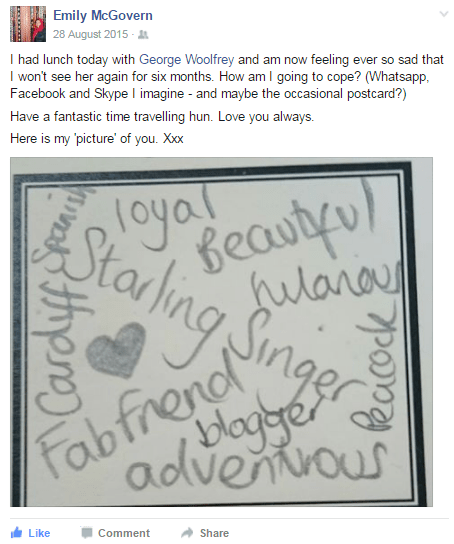 Emily McGovern
28 August 2015 ·
I had lunch today with George Woolfrey and am now feeling ever so sad that
I won't see her again for six months. How am I going to cope? (Whatsapp,
Facebook and Skype I imagine - and maybe the occasional postcard?)
Have a fantastic time travelling hun. Love you always.
Here is my 'picture' of you. Xxx
Spanish
loyal
Beautiful
Starling
hilarious
Cardiff
Singer
Peacock
Fab friend
blogger
adventurous
Like Comment Share